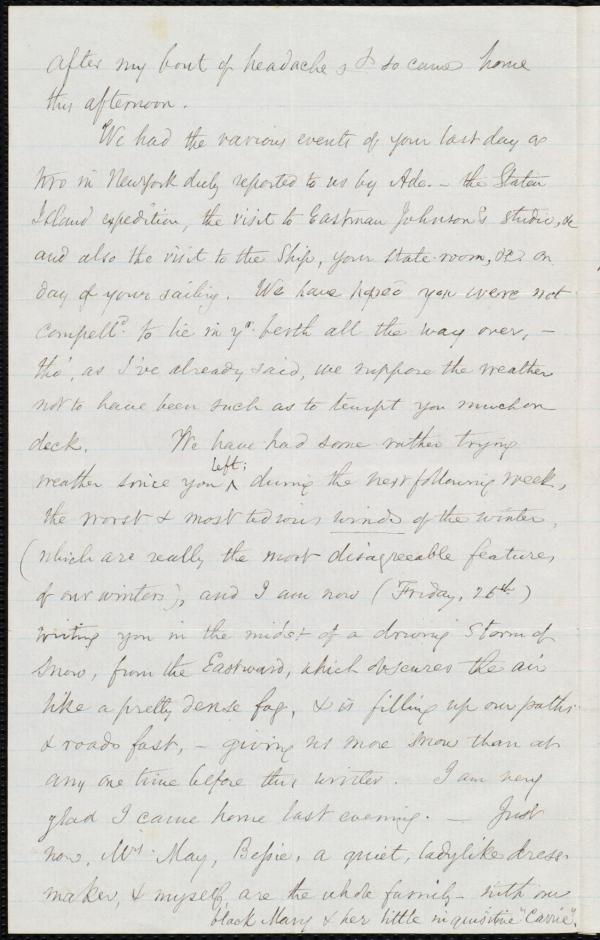 after my bout of headache, & so came home
this afternoon.
We had the various events of your last day or
two in New York duly reported to us by Ade. – the Staten
Island expedition, the visit to Eastman Johnson's studio, &c
and also the visit to the Ship, your state-room, &c. on
day of your sailing. We have hoped you were not
compell'd to lie in yr. berth all the way over, –
tho', as I've already said, we suppose the weather
not to have been such as to tempt you much on
deck. We have had some rather trying
weather since you left; during the next following week,
the worst & most tedious winds of the winter,
(which are really the most disagreeable features
of our winters), and I am now (Friday, 26th)
writing you in the midst of a driving storm of
snow, from the Eastward, which obscures the air
like a pretty dense fog, & is filling up our paths
& roads fast, – giving us more snow than at
any one time before this winter. I am very
glad I came home last evening. – Just
now, Mrs. May, Bessie, a quiet, ladylike dress-
maker, & myself, are the whole family – with our
black Mary & her little inquisitive "Carrie".